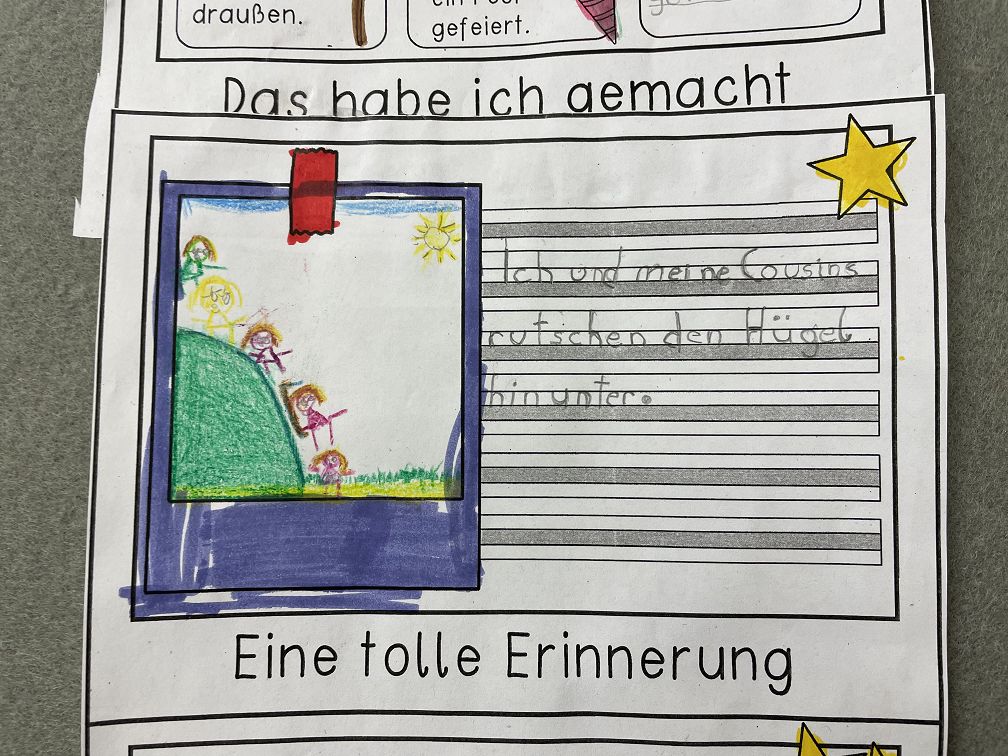 draußen.
gefeiert.
Das habe ich gemacht
Ich und meine Cousins
rutschen den Hügel
hin unter.
Eine tolle Erinnerung